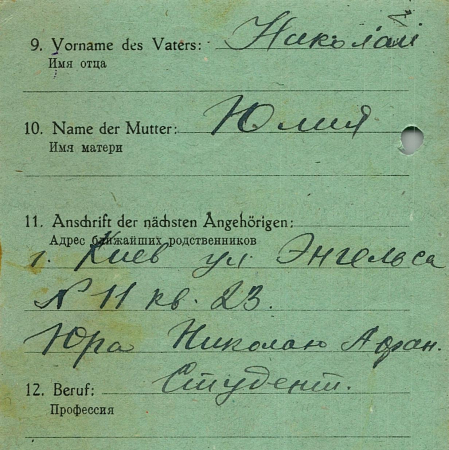 9. Vorname des Vaters: Николай
Имя отца
10. Name der Mutter: Юлия
Имя матери
11. Anschrift der nächsten Angehörigen:
Адрес ближайших родственников
г. Киев ул Энгельса
№ 11 кв. 23.
Юра Николаю Афан.
12. Beruf: Студент.
Профессия